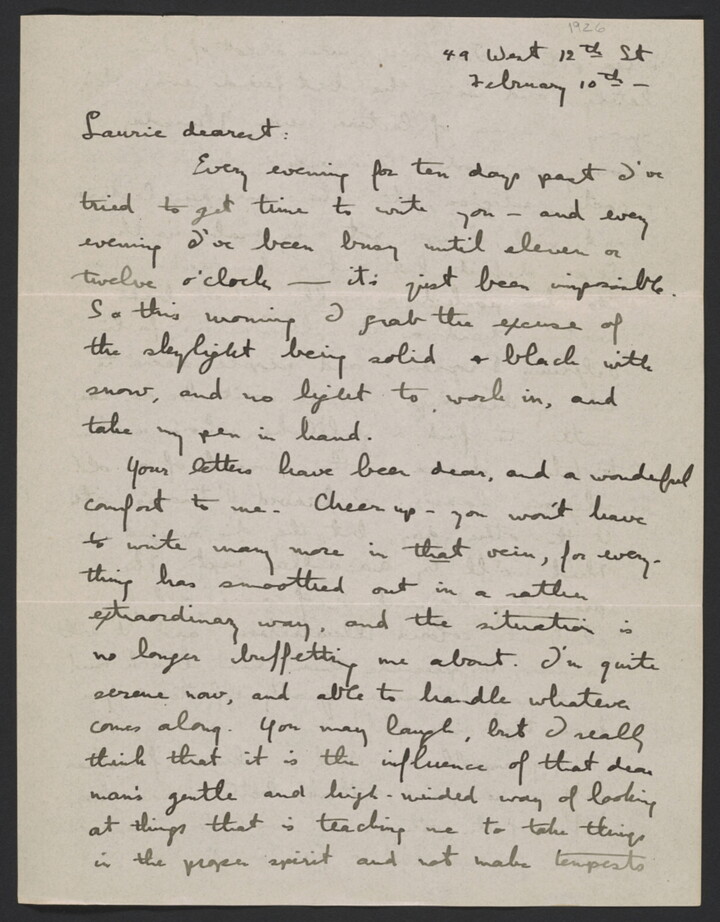 1926
49 West 12th St
February 10th —
Laurie dearest:
Every evening for ten days past I've
tried to get time to write you — and every
evening I've been busy until eleven or
twelve o'clock — it's just been impossible.
So this morning I grab the excuse of
the skylight being solid & black with
snow, and no light to work in, and
take my pen in hand.
Your letters have been dear, and a wonderful
comfort to me. Cheer up — you won't have
to write many more in that vein, for every-
thing has smoothed out in a rather
extraordinary way, and the situation is
no longer buffetting me about. I'm quite
serene now, and able to handle whatever
comes along. You may laugh, but I really
think that it is the influence of that dear
man's gentle and high-minded way of looking
at things that is teaching me to take things
in the proper spirit and not make tempests